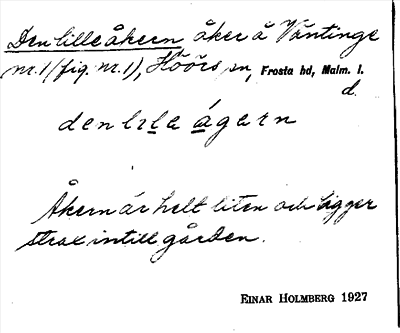 Den lille åkern, åker å Väntinge
nr. 1 (fig. nr. 1), Höörs sn, Frosta hd, Malm. l.
d.
den lıle ágern
Åkern är helt liten och ligger
strax intill gården.
EINAR HOLMBERG 1927